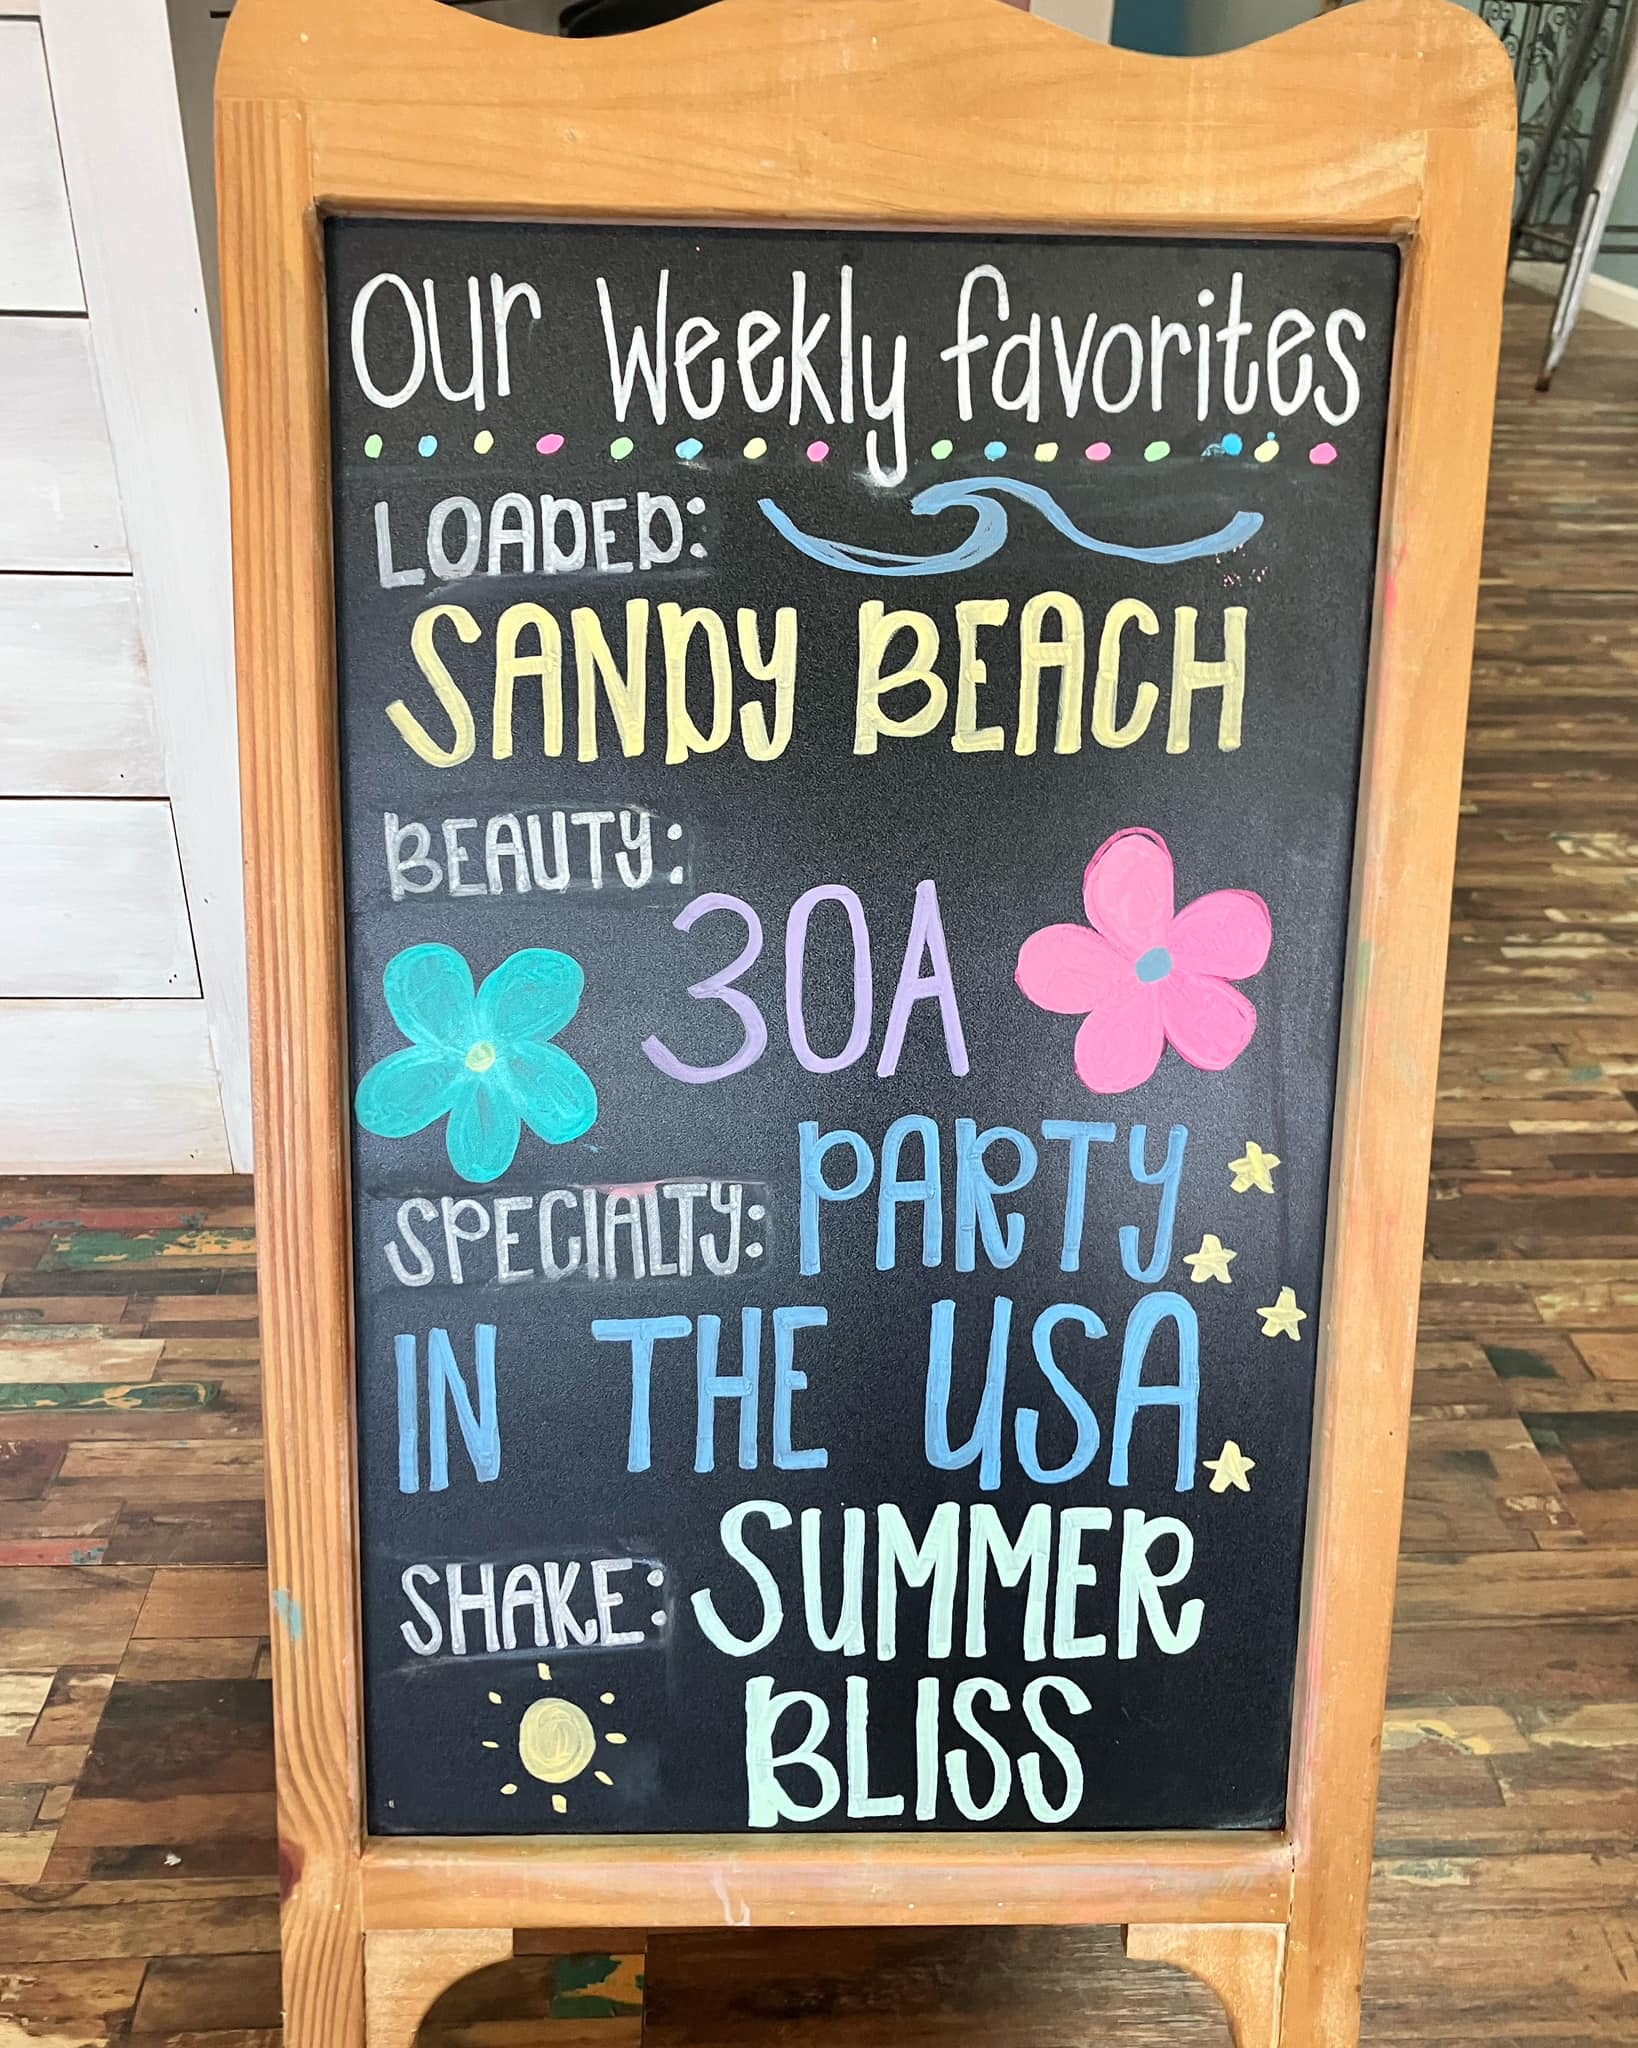 our weekly favorites
LOADED:
SANDY BEACH
BEAUTY:
30A
SPECIALTY: PARTY
IN THE USA
SHAKE: SUMMER
BLISS